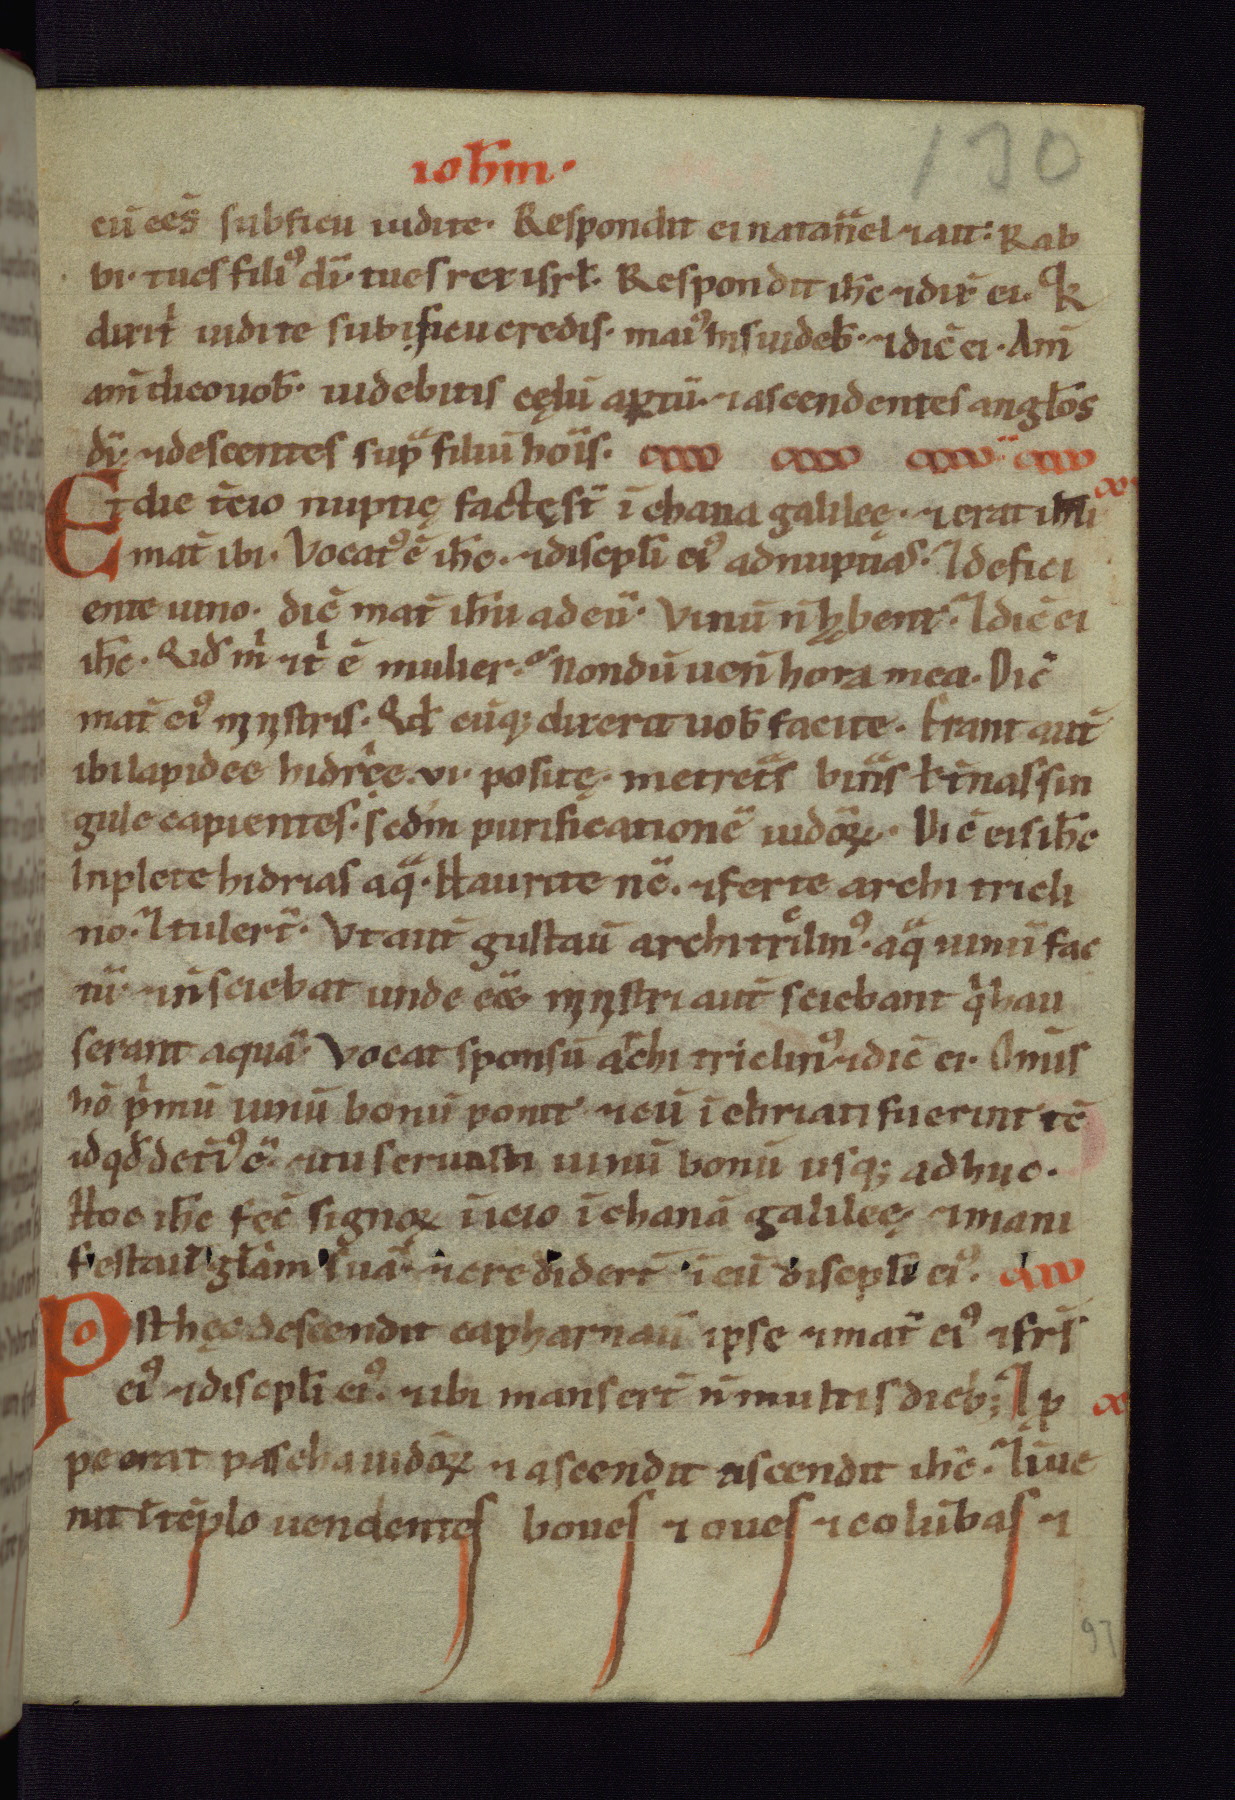 130
ioh̄m·
cū eēs subficu uidite· Respondit ei natan̄el ⁊ ait: Rab
bi· tu es filiꝰ dī· tu es rex isrł· Respondit ih̄c ⁊ dix̄ ei· Q͛a
dixit͛ uidi te sub ficu credis· maiꝰ his uideb̄· ⁊ dic̄ ei· Am̄
am̄ dico uob̄· uidebitis cęlū aptū· ⁊ ascendentes angłos
dī· ⁊ descentes sup͛ filiū hoīs·
Et die t̄cio nuptię factę st̄ ī chana galileę· ⁊ erat ih̄u
mat̄ ibi· Vocatꝰ ē ih̄c· ⁊ discipłi eiꝰ ad nuptias· ⁊ defici
ente uino· dic̄ mat̄ ih̄u ad eū· Vinū n̄ hębent· ⁊ dic̄ ei
ih̄c· Qid m͛ ⁊ t͛ ē mulier· Nondū uen̄ hora mea· Dic̄
mat̄ eiꝰ mįnįstris· Qđ cūq; dixerit uob̄ facite· Erant aut̄
ibi lapidee hidr͛ęe· vi· positę· metret̄s bin̄s ł t̄nas sin
gule capientes· scd̄m purificationē iudōꝝ· Dic̄ eis ih̄c
Inplete hidrias aq̄· Haurite nc̄· ⁊ ferte archi tricli
no· ⁊ tulert̄· Vt aut̄ gustau̅ architriclinꝰ· aq̄ uinū fac
tū· ⁊ n̄ sciebat unde eēt mįnįstri aut̄ sciebant q͛ hau
serant aquā· Vocat sponsū archi triclinꝰ ⁊ dic̄ ei· Om̄is
hō p͛mū uinū bonū ponit ⁊ cū īebriati fuerint tc̄
id qđ det̄iꝰ ē· ⁊ tu seruasti uinū bonū usq; adhuc·
Hoc ih̄c fec̄ signoꝝ īicio ī chanā galileę· ⁊ mani
festau̅ głam suā· ⁊ crediderт̄ ī eū discipłi eiꝰ·
Post hęc descendit capharnaū ipse ⁊ mat̄ eiꝰ ⁊ fr̄s
eiꝰ ⁊ discipłi eiꝰ· ⁊ ibi manser̄t n̄ multis dieb; ⁊ ꝓ
pe erat pascha iudōꝝ ⁊ ascendit ascendit ih̄c· ⁊ īue
nit ī tēplo uendentes boues ⁊ oues ⁊ colūbas ⁊
97